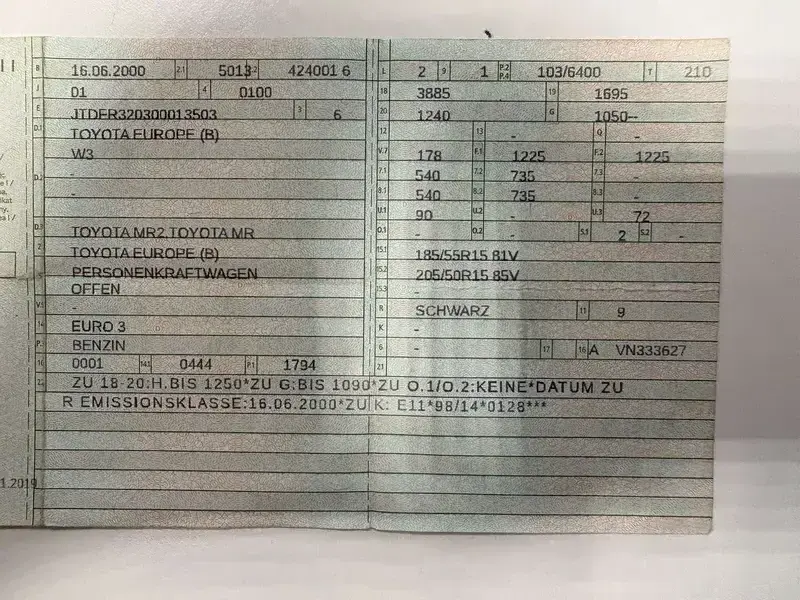 B 16.06.2000 2.1 5013 2.2 424001 6
J 01 4 0100
E JTDER320300013503 3 6
D.1 TOYOTA EUROPE (B)
W3
D.2 -
-
D.3 TOYOTA MR2,TOYOTA MR
2 TOYOTA EUROPE (B)
5 PERSONENKRAFTWAGEN
OFFEN
V.9 -
14 EURO 3
P.3 BENZIN
10 0001 14.1 0444 P.1 1794
L 2 9 1 P.2 P.4 103/6400 T 210
18 3885 19 1695
20 1240 G 1050--
12 - 13 - Q -
V.7 178 F.1 1225 F.2 1225
7.1 540 7.2 735 7.3 -
8.1 540 8.2 735 8.3 -
U.1 90 U.2 - U.3 72
O.1 - O.2 - S.1 2 S.2 -
15.1 185/55R15 81V
15.2 205/50R15 85V
15.3 -
R SCHWARZ 11 9
K -
6 - 17 16 A VN333627
21
22 ZU 18-20:H.BIS 1250*ZU G:BIS 1090*ZU O.1/O.2:KEINE*DATUM ZU
R EMISSIONSKLASSE:16.06.2000*ZU K: E11*98/14*0128***
1.2019